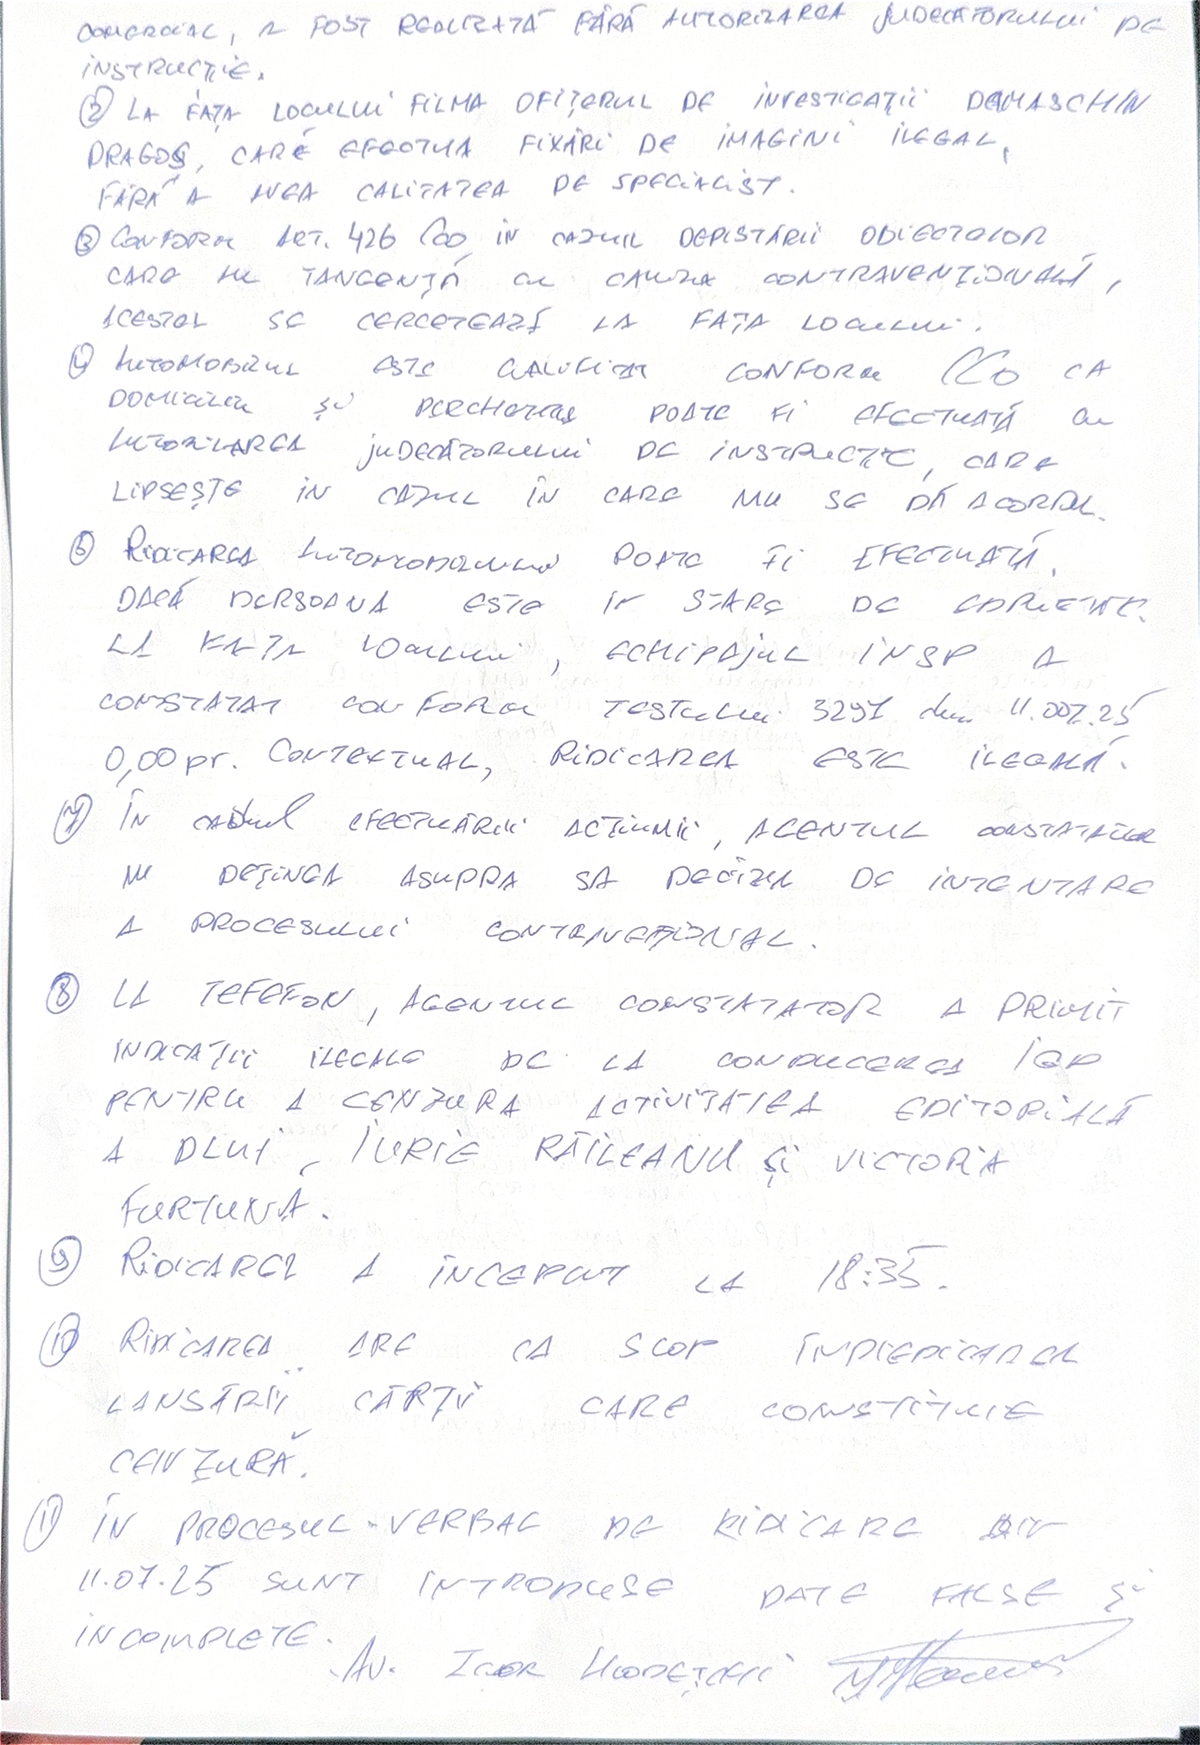 COMERCIAL, A FOST REALIZATĂ FĂRĂ AUTORIZAREA JUDECĂTORULUI DE
INSTRUCȚIE.
② LA FAȚA LOCULUI FILMA OFIȚERUL DE INVESTIGAȚII DAMASCHIN
DRAGOȘ, CARE EFECTUA FIXĂRI DE IMAGINI ILEGAL,
FĂRĂ A AVEA CALITATEA DE SPECIALIST.
③ CONFORM ART. 426 CCO ÎN CAZUL DEPISTĂRII OBIECTELOR
CARE AU TANGENȚĂ CU CAUZA CONTRAVENȚIONALĂ,
ACESTEA SE CERCETEAZĂ LA FAȚA LOCULUI.
④ AUTOMOBILUL ESTE CALIFICAT CONFORM CCO CA
DOMICILIU ȘI PERCHEZIȚIA POATE FI EFECTUATĂ CU
AUTORIZAREA JUDECĂTORULUI DE INSTRUCȚIE, CARE
LIPSEȘTE ÎN CAZUL ÎN CARE NU SE DĂ ACORDUL.
RIDICAREA AUTOMOBILULUI POATE FI EFECTUATĂ,
DACĂ PERSOANA ESTE ÎN STARE DE EBRIETATE.
LA FAȚA LOCULUI, ECHIPAJUL INSP A
CONSTATAT CONFORM TESTULUI 3291 din 11.007.25
0,00 pr. CONTEXTUAL, RIDICAREA ESTE ILEGALĂ.
⑦ ÎN CADRUL EFECTUĂRII ACȚIUNII, AGENTUL CONSTATATOR
NU DEȚINEA ASUPRA SA DECIZIA DE INTENTARE
A PROCESULUI CONTRAVENȚIONAL.
⑧ LA TEFEFON, AGENTUL CONSTATATOR A PRIMIT
INDICAȚII ILEGALE DE LA CONDUCEREA IGP
PENTRU A CENZURA ACTIVITATEA EDITORIALĂ
A DLUI, IURIE RĂILEANU ȘI VICTORIA
FURTUNĂ.
⑨ RIDICAREA A ÎNCEPUT LA 18:35.
⑩ RIDICAREA ARE CA SCOP ÎMPIEDICAREA
LANSĂRII CĂRȚII CARE CONSTITUIE
CENZURĂ.
⑪ ÎN PROCESUL-VERBAL DE RIDICARE DIN
11.07.25 SUNT INTRODUSE DATE FALSE ȘI
INCOMPLETE.
AV. IGOR HODEȚCHI